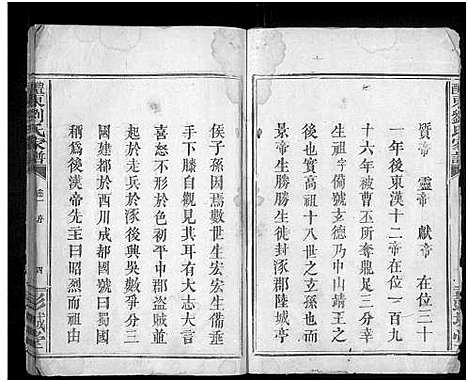 醴東劉氏家譜
質帝 靈帝 獻帝 在位三十
一年後東漢十二帝在位一百九
十六年後被曹丕所奪鼎足三分幸
生祖 字備號玄德乃中山靖王之
後也又考高祖十八世之玄孫也而
景帝生勝勝生貞封涿郡陸城亭
侯子孫因焉數世生宏宏生備垂
手下膝自觀見其耳有大志大言
喜怒不形於色初平中郡賊並
起於走兵於後與吳數爭三分
國建都於西川成都國號曰蜀國
稱爲後漢帝先主曰昭烈而祖由
醴東劉氏家譜
卷一 四
彭城堂